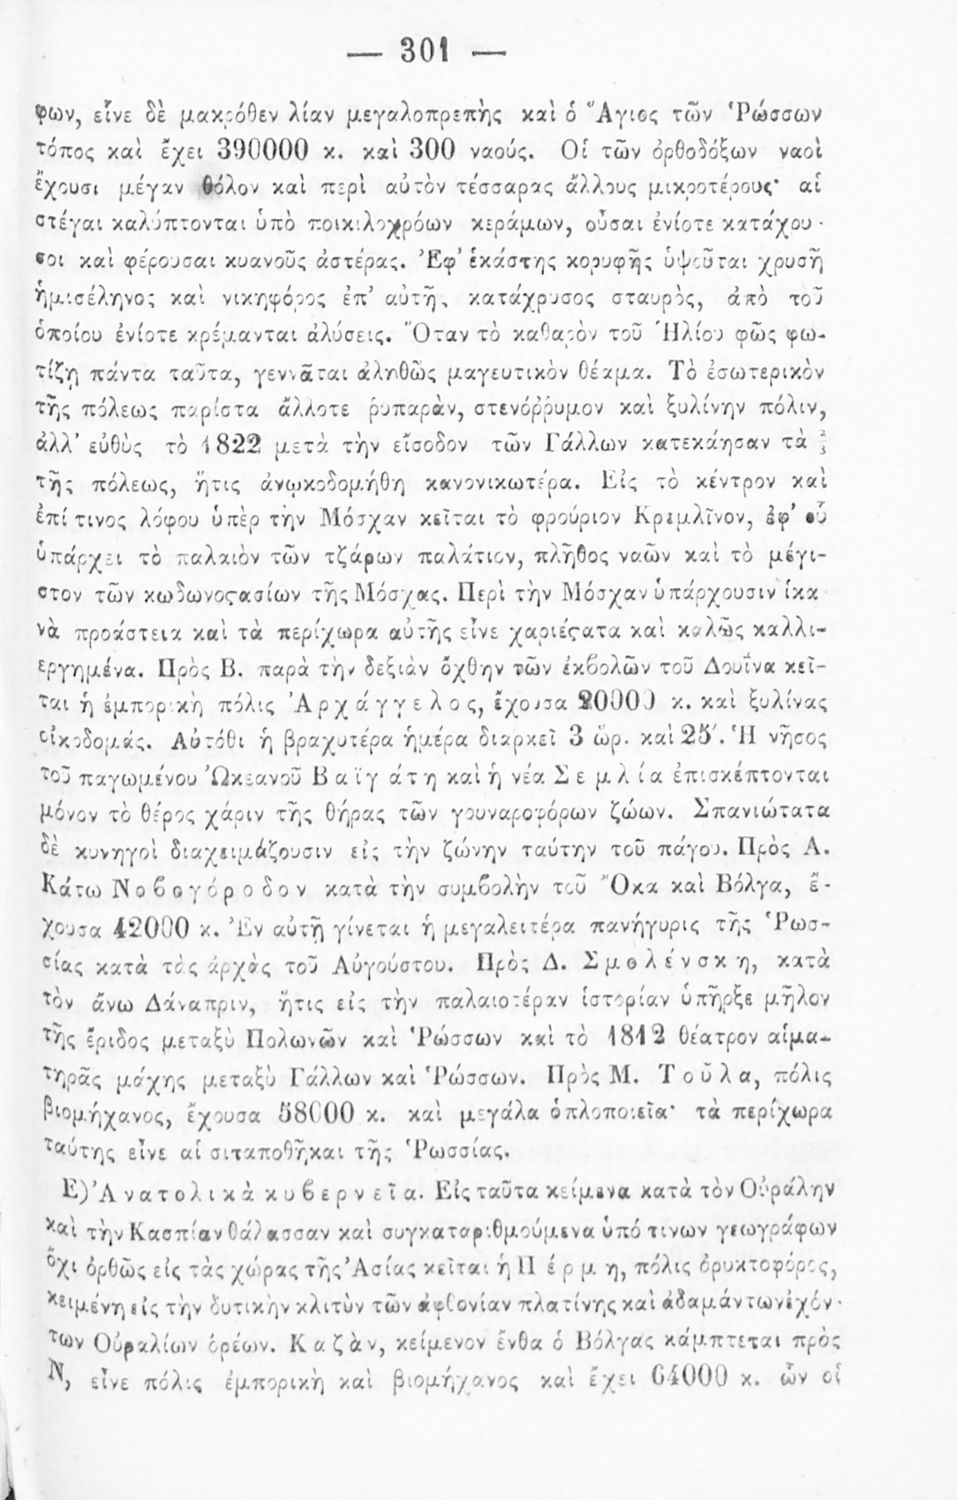 — 301 —
φων, εἶνε δὲ μακρόθεν λίαν μεγαλοπρεπὴς καὶ ὁ Ἅγιος τῶν Ῥώσσων
τόπος καὶ ἔχει 390000 κ. καὶ 300 ναούς. Οἱ τῶν ὀρθοδόξων ναοὶ
ἔχουσι μέγαν θόλον καὶ περὶ αὐτὸν τέσσαρας ἄλλους μικροτέρους· αἱ
στέγαι καλύπτονται ὑπὸ ποικιλοχρόων κεράμων, οὖσαι ἐνίοτε κατάχρυ-
σοι καὶ φέρουσαι κυανοῦς ἀστέρας. Ἐφ’ ἑκάστης κορυφῆς ὑψοῦται χρυσῆ
ἡμισέληνος καὶ νικηφόρος ἐπ’ αὐτῇ, κατάχρυσος σταυρὸς, ἀπὸ τοῦ
ὁποίου ἐνίοτε κρέμανται ἁλύσεις. Ὅταν τὸ καθαρὸν τοῦ Ἡλίου φῶς φω-
τίζῃ πάντα ταῦτα, γεννᾶται ἀληθῶς μαγευτικὸν θέαμα. Τὸ ἐσωτερικὸν
τῆς πόλεως παρίστα ἄλλοτε ῥυπαρὰν, στενόῤῥυμον καὶ ξυλίνην πόλιν,
ἀλλ’ εὐθὺς τὸ 1822 μετὰ τὴν εἴσοδον τῶν Γάλλων κατεκάησαν τὰ ⅔
τῆς πόλεως, ἥτις ἀνῳκοδομήθη κανονικωτέρα. Εἰς τὸ κέντρον καὶ
ἐπί τινος λόφου ὑπὲρ τὴν Μόσχαν κεῖται τὸ φρούριον Κρεμλῖνον, ἐφ’ οὗ
ὑπάρχει τὸ παλαιὸν τῶν τζάρων παλάτιον, πλῆθος ναῶν καὶ τὸ μέγι-
στον τῶν κωδωνοςασίων τῆς Μόσχας. Περὶ τὴν Μόσχαν ὑπάρχουσιν ἱκα-
νὰ προάστεια καὶ τὰ περίχωρα αὐτῆς εἶνε χαριέςατα καὶ καλῶς καλλι-
εργημένα. Πρὸς Β. παρὰ τὴν δεξιὰν ὄχθην τῶν ἐκβολῶν τοῦ Δουΐνα κεῖ-
ται ἡ ἐμπορικὴ πόλις Ἀρχάγγελος, ἔχουσα 20000 κ. καὶ ξυλίνας
οἰκοδομάς. Αὐτόθι ἡ βραχυτέρα ἡμέρα διαρκεῖ 3 ὥρ. καὶ 25′. Ἡ νῆσος
τοῦ παγωμένου Ὠκεανοῦ Βαϊγάτη καὶ ἡ νέα Σεμλία ἐπισκέπτονται
μόνον τὸ θέρος χάριν τῆς θήρας τῶν γουναροφόρων ζώων. Σπανιώτατα
δὲ κυνηγοὶ διαχειμάζουσιν εἰς τὴν ζώνην ταύτην τοῦ πάγου. Πρὸς Α.
Κάτω Νοβογόροδον κατὰ τὴν συμβολὴν τοῦ Ὄκα καὶ Βόλγα, ἔ-
χουσα 42000 κ. Ἐν αὐτῇ γίνεται ἡ μεγαλειτέρα πανήγυρις τῆς Ῥωσ-
σίας κατὰ τὰς ἀρχὰς τοῦ Αὐγούστου. Πρὸς Δ. Σμολένσκη, κατὰ
τὸν ἄνω Δάναπριν, ἥτις εἰς τὴν παλαιοτέραν ἱστορίαν ὑπῆρξε μῆλον
τῆς ἔριδος μεταξὺ Πολωνῶν καὶ Ῥώσσων καὶ τὸ 1812 θέατρον αἱμα-
τηρᾶς μάχης μεταξὺ Γάλλων καὶ Ῥώσσων. Πρὸς Μ. Τοῦλα, πόλις
βιομήχανος, ἔχουσα 58000 κ. καὶ μεγάλα ὁπλοποιεῖα· τὰ περίχωρα
ταύτης εἶνε αἱ σιταποθῆκαι τῆς Ῥωσσίας.
Ε) Ἀνατολικὰ κυβερνεῖα. Εἰς ταῦτα κείμενα κατὰ τὸν Οὐράλην
καὶ τὴν Κασπίαν θάλασσαν καὶ συγκαταριθμούμενα ὑπό τινων γεωγράφων
ὄχι ὀρθῶς εἰς τὰς χώρας τῆς Ἀσίας κεῖται ἡ Πέρμη, πόλις ὀρυκτοφόρος,
κειμένη εἰς τὴν δυτικὴν κλιτὺν τῶν ἀφθονίαν πλατίνης καὶ ἀδαμάντων ἐχόν-
των Οὐραλίων ὀρέων. Καζὰν, κείμενον ἔνθα ὁ Βόλγας κάμπτεται πρὸς
Ν, εἶνε πόλις ἐμπορικὴ καὶ βιομήχανος καὶ ἔχει 64000 κ. ὧν οἱ